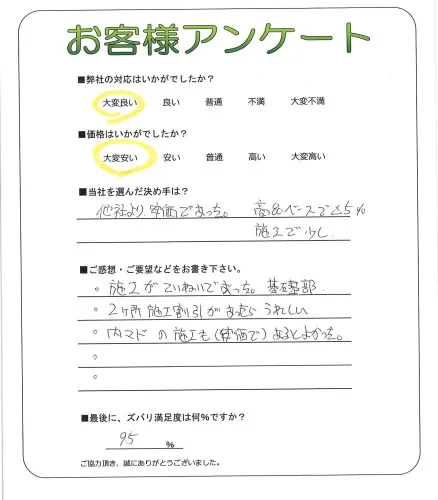 お客様アンケート
■弊社の対応はいかがでしたか？
大変良い 良い 普通 不満 大変不満
■価格はいかがでしたか？
大変安い 安い 普通 高い 大変高い
■当社を選んだ決め手は？
他社より安価であった。 商品ベースで△5%
施工で少し
■ご感想・ご要望などをお書き下さい。
。施工がていねいであった。基礎部
。2ヶ所施工割引があったらうれしい
。内マドの施工も(安価で)あるとよかった。
。
。
■最後に、ズバリ満足度は何%ですか？
95 %
ご協力頂き、誠にありがとうございました。